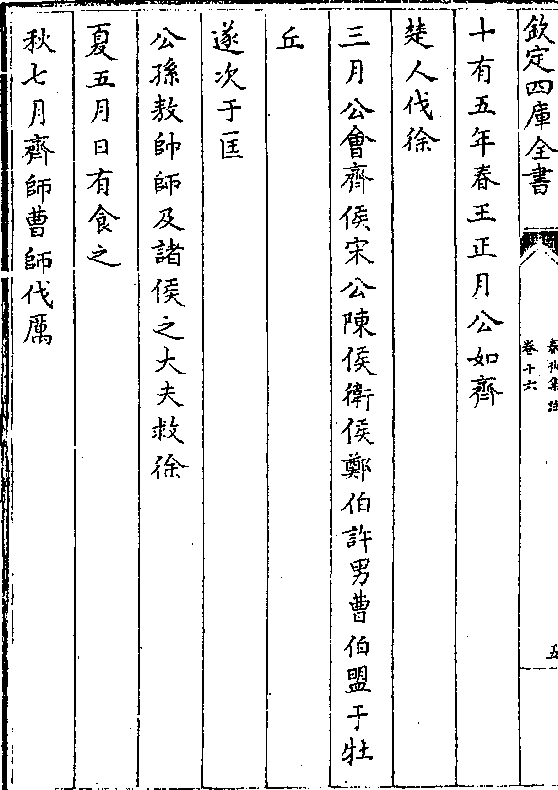 欽定四庫全書
卷十六
五
十有五年春王正月公如齊
楚人伐徐
三月公會齊侯宋公陳侯衛侯鄭伯許男曹伯盟于牡
丘
遂次于匡
公孫敖帥師及諸侯之大夫救徐
夏五月日有食之
秋七月齊師曹師伐厲